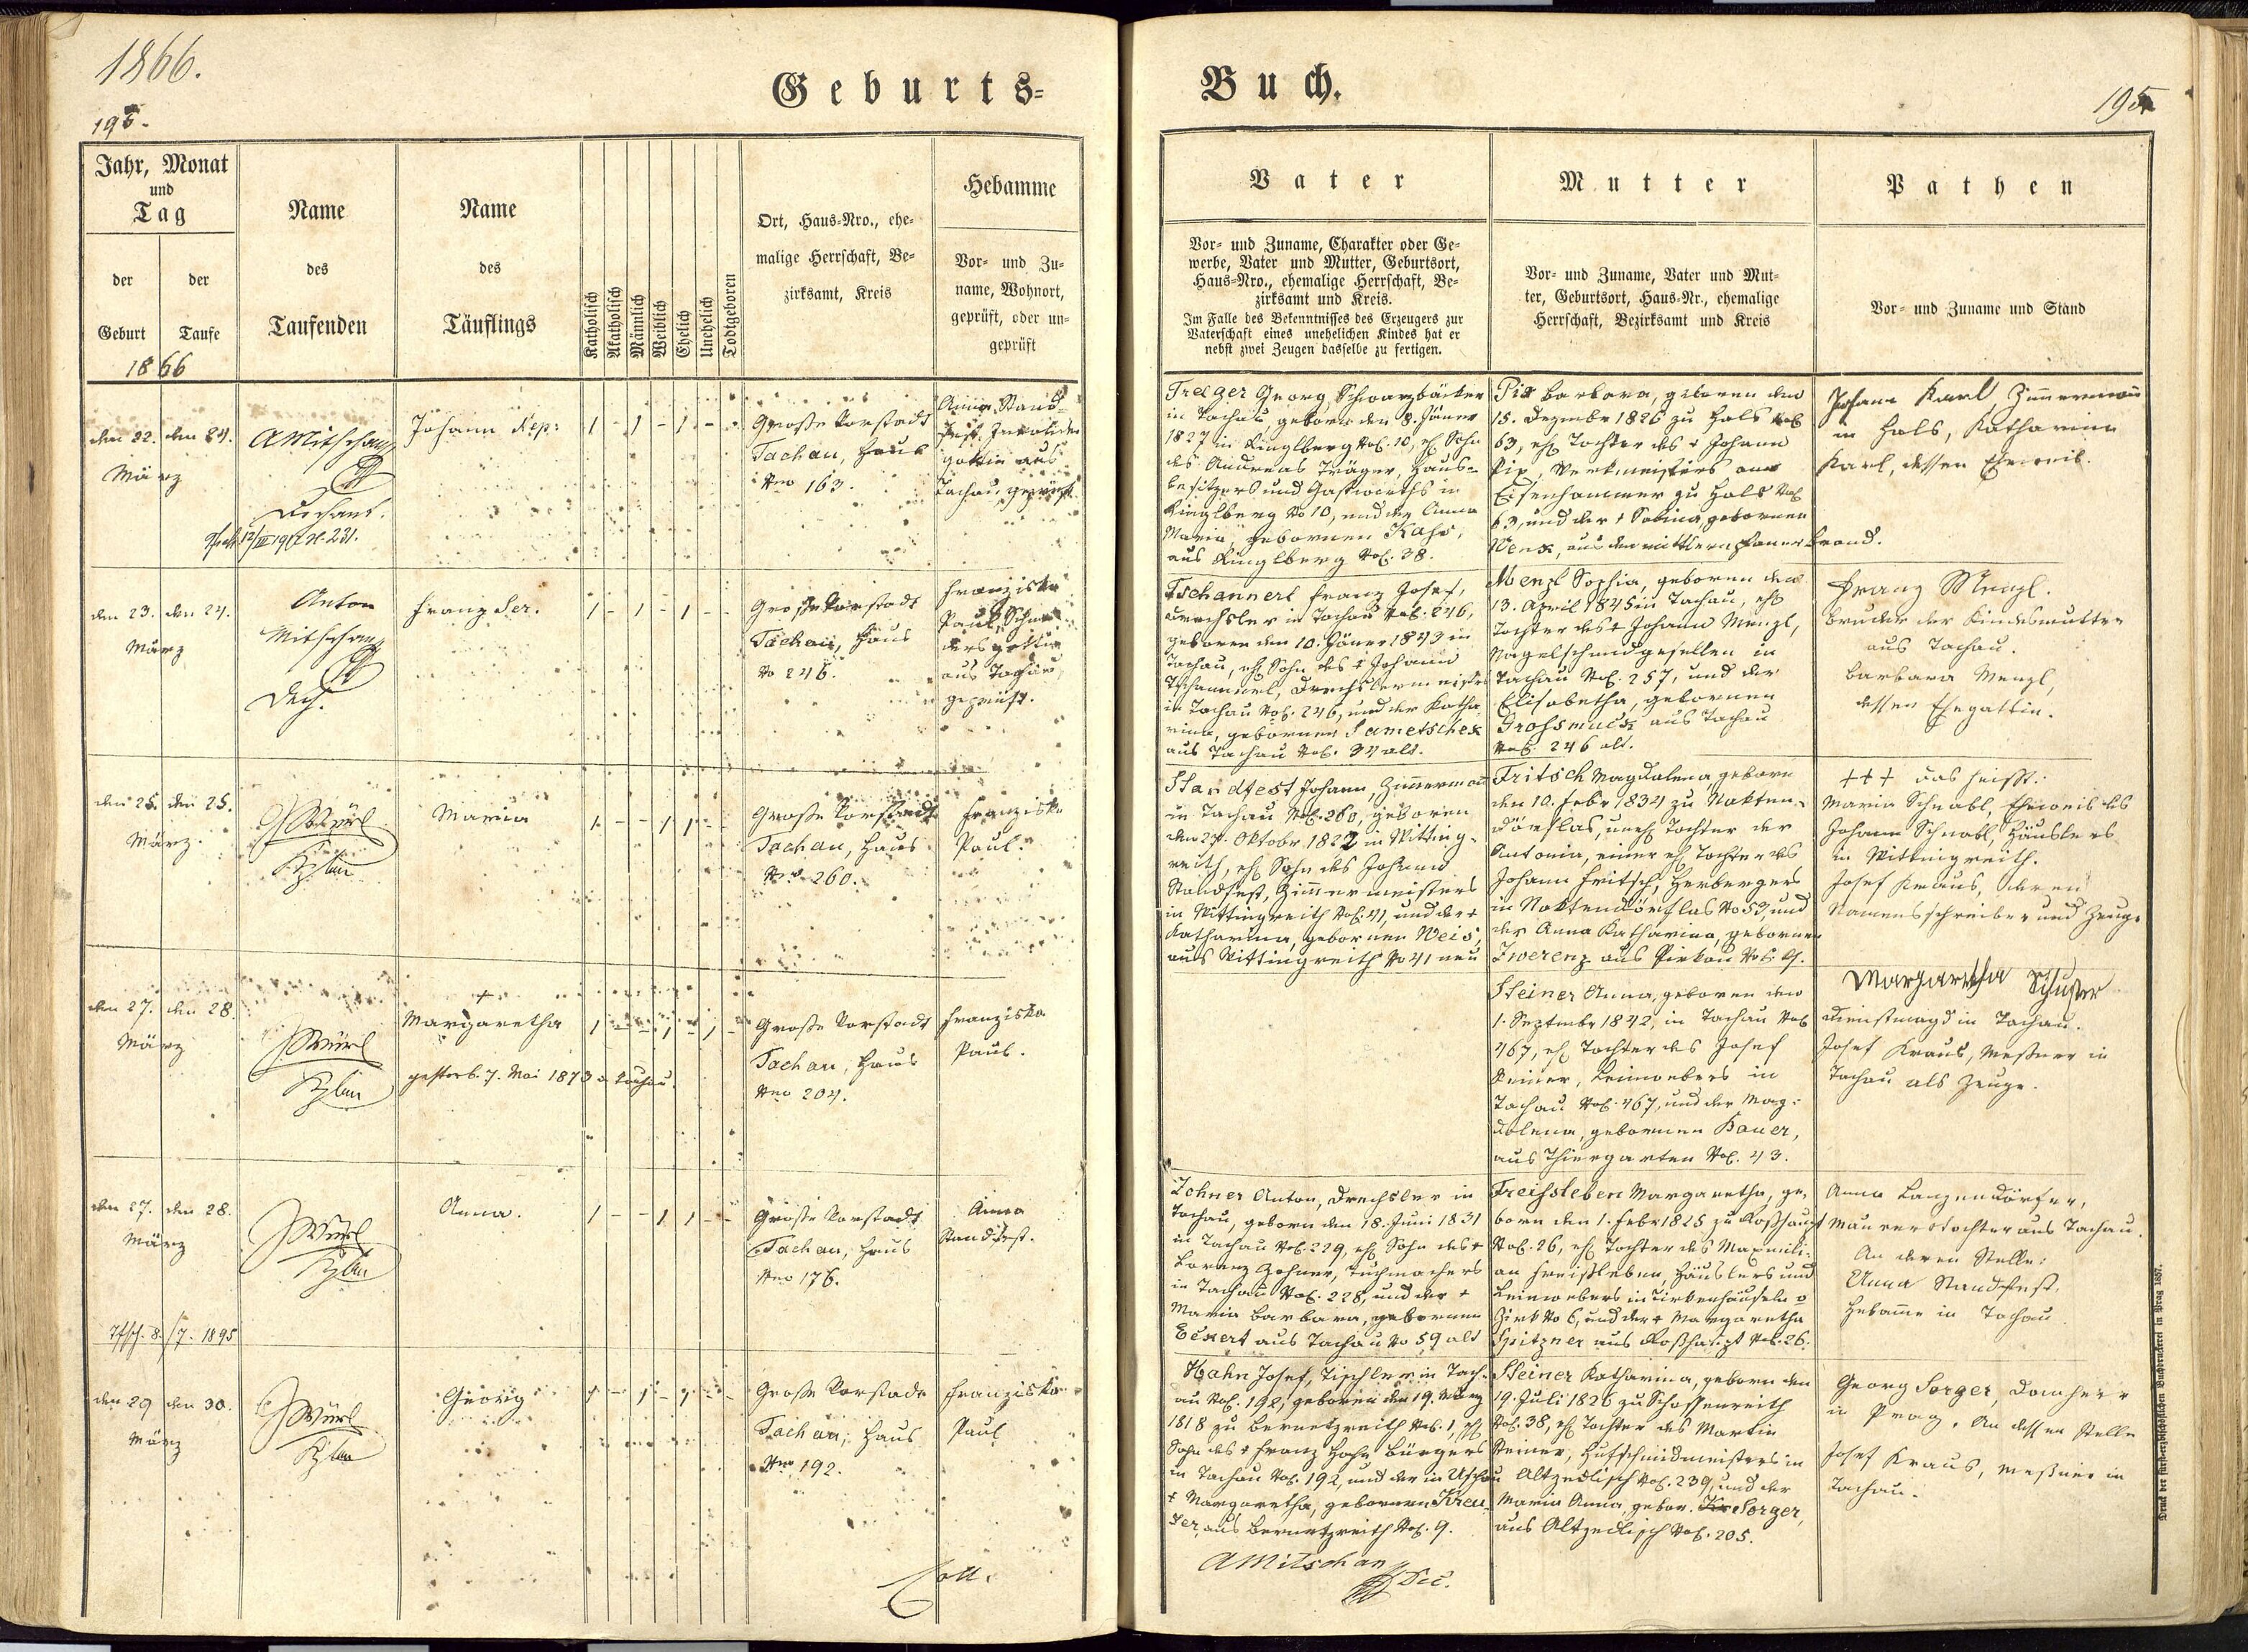 1866.
Geburts-
Buch.
195.
195
Jahr, Monat
und
Tag
der
Geburt
der
Taufe
1866
Name
des
Taufenden
Name
des
Täuflings
Katholisch
Akatholisch
Männlich
Weiblich
Ehelich
Unehelich
Todtgeboren
Ort, Haus-Nro., ehe-
malige Herrschaft, Be-
zirksamt, Kreis
Hebamme
Vor- und Zu-
name, Wohnort,
geprüft, oder un-
geprüft
Vater
Vor- und Zuname, Charakter oder Ge-
werbe, Vater und Mutter, Geburtsort,
Haus-Nro., ehemalige Herrschaft, Be-
zirksamt und Kreis.
Im Falle des Bekenntnisses des Erzeugers zur
Vaterschaft eines unehelichen Kindes hat er
nebst zwei Zeugen dasselbe zu fertigen.
Mutter
Vor- und Zuname, Vater und Mut-
ter, Geburtsort, Haus-Nr., ehemalige
Herrschaft, Bezirksamt und Kreis
Pathen
Vor- und Zuname und Stand
den 22. den 24.
März
AMitschan
Dechant.
Johann Nep:
1 - 1 - 1 - -
Große Vorstadt
Tachau, Haus
Nro 163.
Anna Stand-
fest, Invaliden
gattin aus
Tachau, geprüft.
Treger Georg, Schwarzbäcker
in Tachau, geboren den 8. Jäner
1827 in Ringlberg NC. 10, eh. Sohn
des Andreas Träger, Haus-
besitzers und Gastwirths in
Ringlberg No 10, und der Anna
Maria, gebornen Kahs,
aus Ringlberg NC. 38.
Pix Barbara, geboren den
15. Dezember 1826 zu Hals NC
63, eh. Tochter des + Johann
Pix, Werkmeisters am
Eisenhammer zu Hals NC
63, und der + Sabina, gebornen
Wenk, aus dem mittlern Hauerbrand.
Johann Karl Zimmermann
in Hals, Katharina
Karl, dessen Eheweib.
den 23. den 24.
März
Anton
Mitschan
Dech.
Franz Ser.
1 - 1 - 1 - -
Große Vorstadt
Tachau, Haus
No 246.
Franziska
Paul, Schnei-
ders gattin
aus Tachau,
geprüft.
Tschannerl Franz Josef,
Drechsler in Tachau NC. 246,
geboren den 10. Jäner 1843 in
Tachau, eh. Sohn des + Johann
Tschannerl, Drechslermeisters
in Tachau NC. 246, und der Katha-
rina, gebornen Sametschek
aus Tachau NC. 34 alt.
Menzl Sophia, geboren den
13. April 1845 in Tachau, ehl.
Tochter des + Johann Menzl,
Nagelschmidgesellen in
Tachau NC. 257, und der
Elisabetha, gebornen
Grosmuck aus Tachau
NC. 246 alt.
Franz Menzl.
Bruder der Kindesmutter
aus Tachau.
Barbara Menzl,
dessen Ehegattin.
den 25. den 25.
März.
JWürl
Kplan
Maria
1 - - 1 1 - -
Große Vorstadt
Tachau, Haus
Nro 260.
Franziska
Paul.
Standfest Johann, Zimmermann
in Tachau NC. 260, geboren
den 27. Oktobr 1822 in Witting-
reith, eh. Sohn des Johann
Standfest, Zimmermeisters
in Wittingreith NC. 41, und der +
Katharina, gebornen Weis,
aus Wittingreith No 41 neu
Fritsch Magdalena, geboren
den 10. Febr 1834 zu Nakten-
dörflas, uneh. Tochter der
Antonia, einer eh. Tochter des
Johann Fritsch, Herbergers
in Naktendörflas No 53, und
der Anna Katharina, gebornen
Zwerenz aus Pirkau NC. 4.
+++ das heißt:
Maria Schnabl, Eheweib des
Johann Schnabl, Häuslers
in Wittingreith.
Josef Kraus, deren
Namensschreiber und Zeuge
den 27. den 28.
März
JWürl
Kplan
+
Margaretha
gestorb. 7. Mai 1873 Tachau.
1 - - 1 - 1 -
Große Vorstadt
Tachau, Haus
Nro 204.
Franziska
Paul.
Steiner Anna, geboren den
1. Septembr 1842, in Tachau NC
467, eh. Tochter des Josef
Steiner, Leinwebers in
Tachau NC. 467, und der Mag-
dalena, gebornen Bauer,
aus Thiergarten NC. 43.
Margaretha Schuster
Dienstmagd in Tachau.
Josef Kraus, Meßner in
Tachau als Zeuge.
den 27. den 28.
März
8./7. 1895
JWürl
Kplan
Anna.
1 - - 1 1 - -
Große Vorstadt
Tachau, Haus
Nro 176.
Anna
Standfest.
Zohner Anton, Drechsler in
Tachau, geboren den 18. Juni 1831
in Tachau NC. 229, eh. Sohn des +
Lorenz Zohner, Tuchmachers
in Tachau NC. 228, und der +
Maria Barbara, gebornen
Eckert aus Tachau No 59 alt
Freissleben Margaretha, ge-
boren den 1. Febr 1825 zu Roßhaupt
NC. 26, eh. Tochter des Maximili-
an Freißleben, Häuslers und
Leinwebers in
No 6, und der + Margaretha
Spitzner aus Roßhaupt NC. 26.
Anna Lanzendörfer,
Maurerstochter aus Tachau.
An deren Stelle:
Anna Standfest
Hebame in Tachau
den 29 den 30.
März
JWürl
Kplan
Georg
1 - 1 - 1 - -
Große Vorstadt
Tachau, Haus
Nro 192.
Franziska
Paul
Hahn Josef, Tischler in Tach-
au NC. 192, geboren den 19. März
1818 zu Bernetzreith NC. 1, eh.
Sohn des + Franz Hahn Bürgers
in Tachau NC. 192, und der in Uschau
+ Margaretha, gebornen Kreu-
zer, aus Bernetzreith NC. 9.
Steiner Katharina, geboren den
19. Juli 1826 zu Schossenreith
NC. 38, eh. Tochter des Martin
Steiner, Hufschmidmeisters in
Altzedlisch NC. 239, und der
Maria Anna, gebor. Sorger,
aus Altzedlisch NC. 205.
Georg Sorger, Domherr
in Prag. An dessen Stelle
Josef Kraus, Meßner in
Tachau.
Coll.
AMitschan
Dec.
Druck der fürsterzbischöflichen Buchdruckerei in Prag 1857.